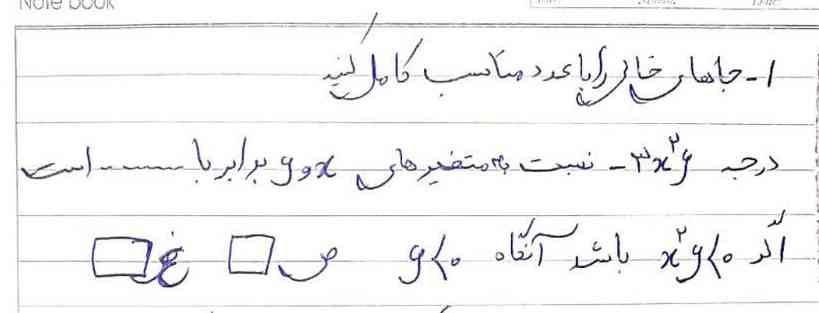 Note book
۱- جاهای خالی را با عدد مناسب کامل کنید
درجه -۳x²y نسبت به متغیرهای x و y برابر با ........ است
اگر x²y<۰ باشد آنگاه y<۰ ص □ غ □